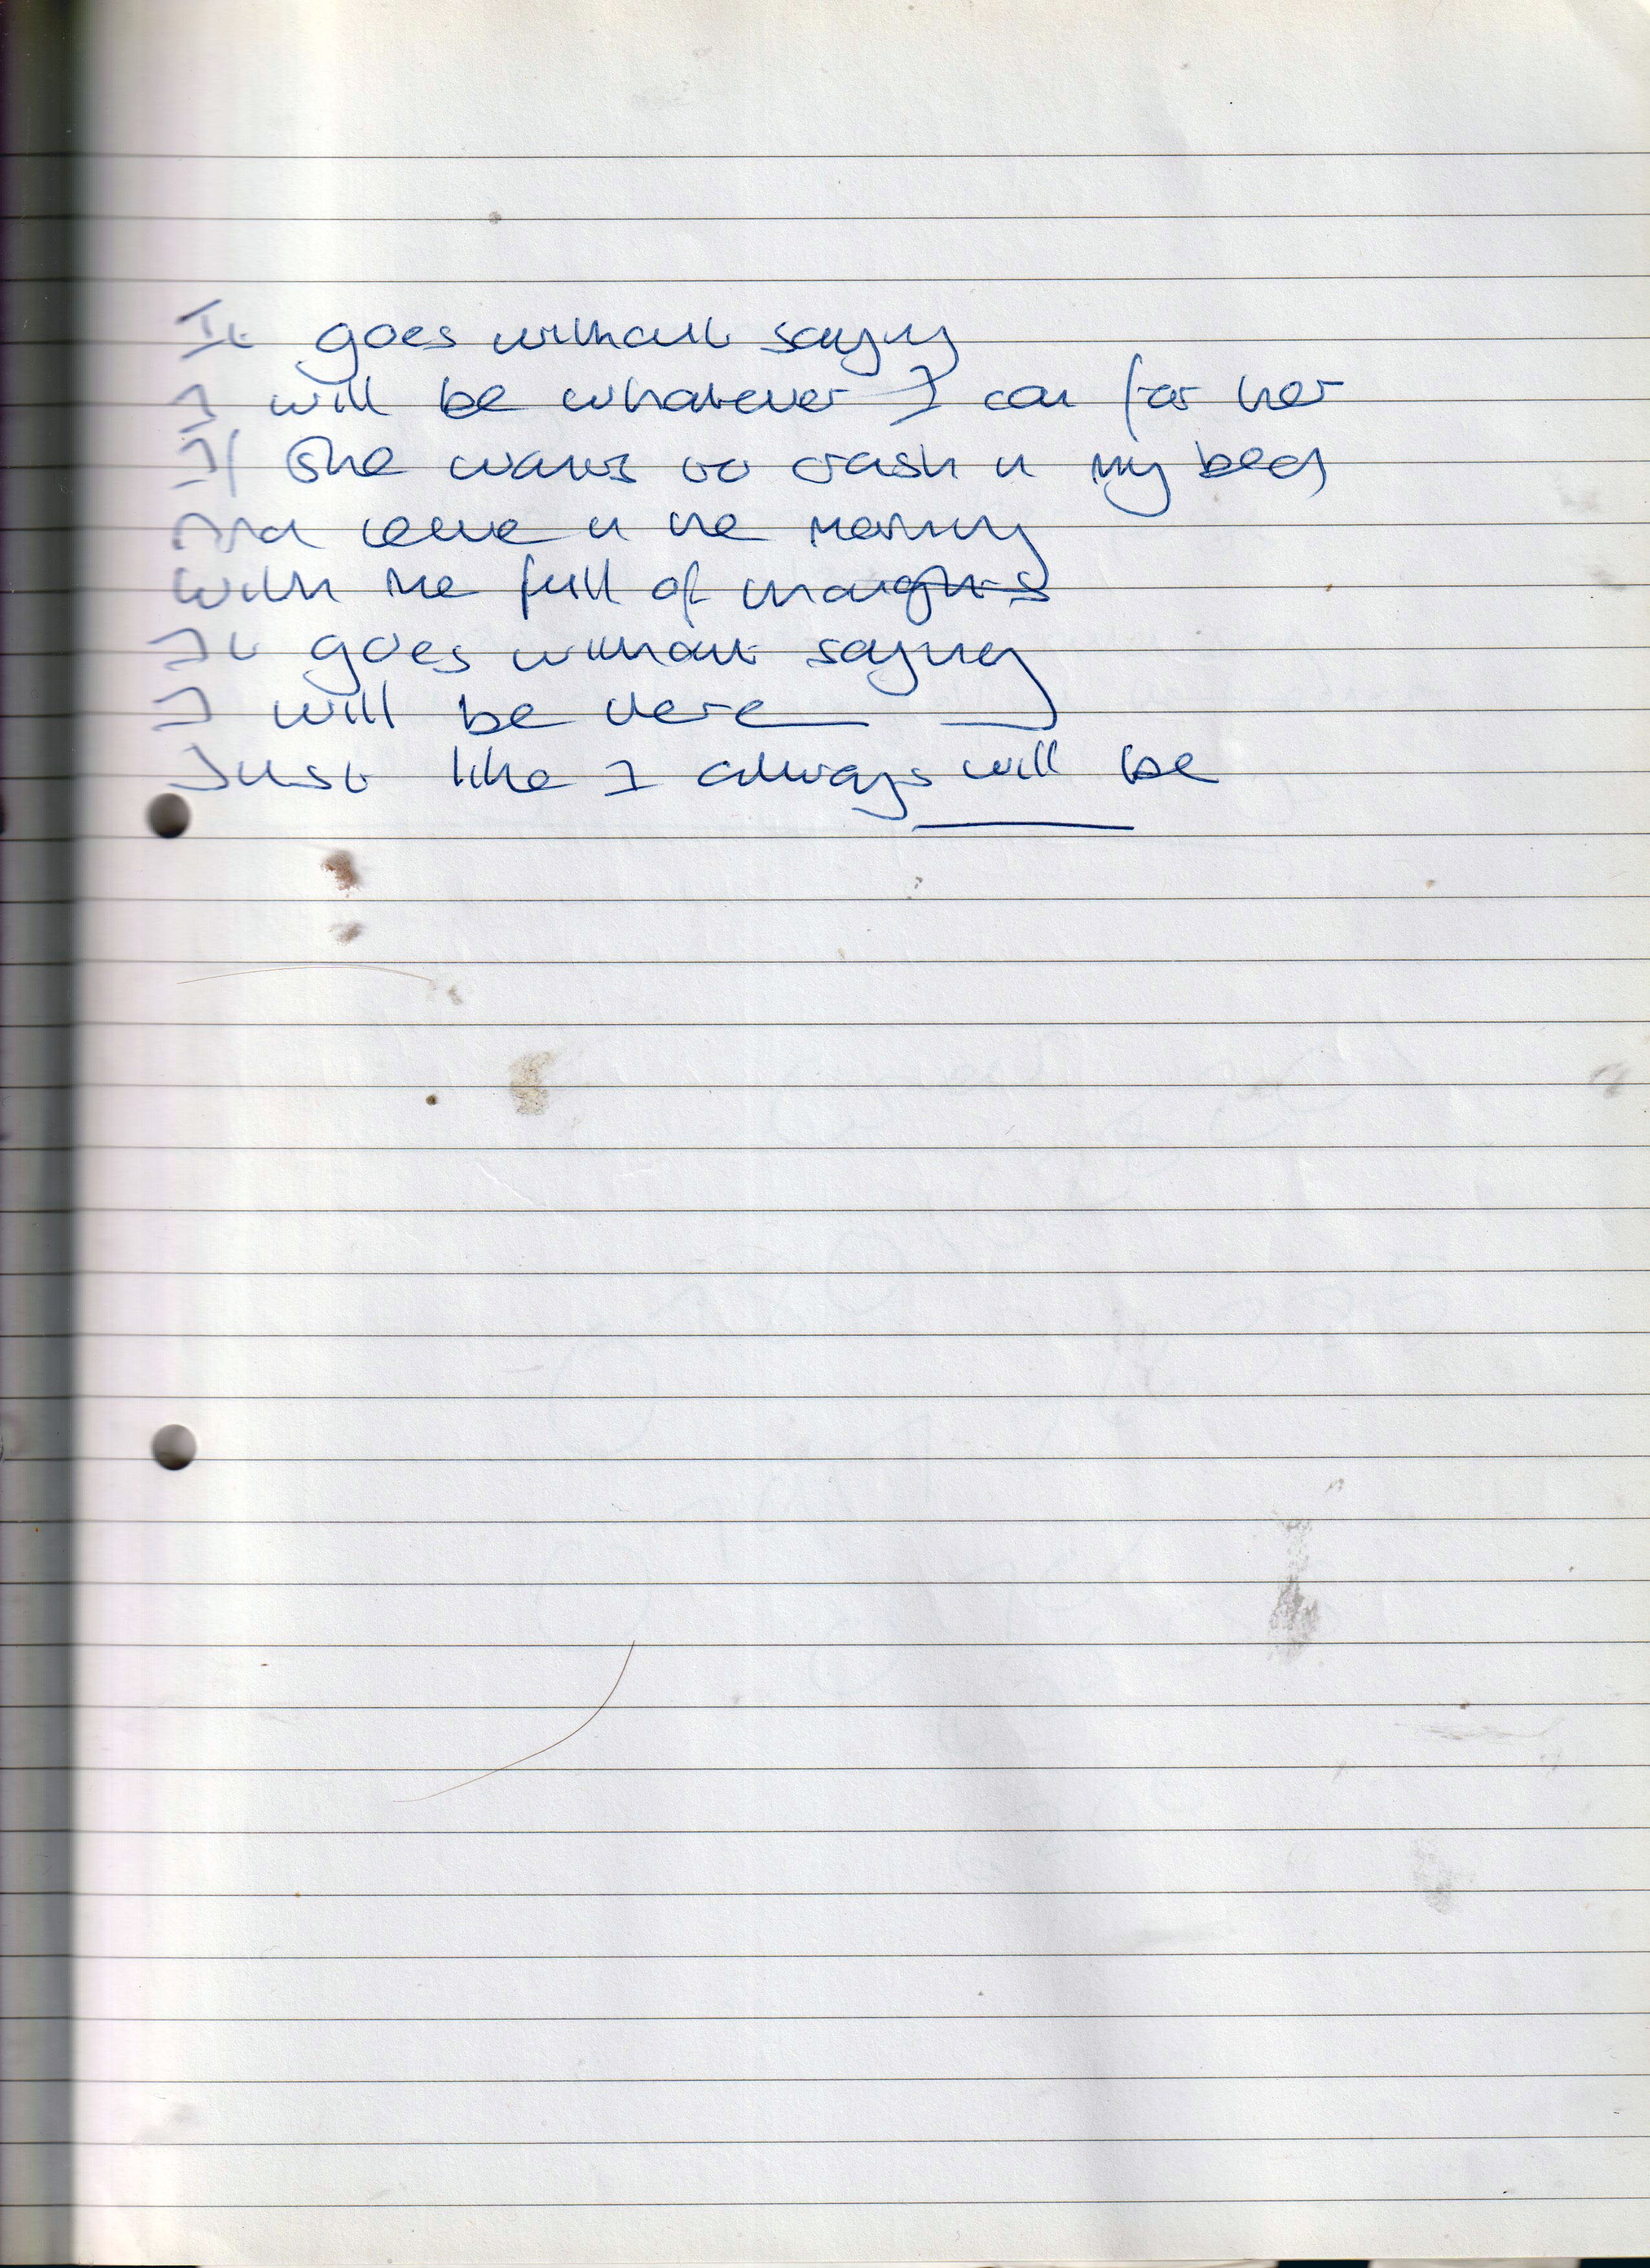 It goes without saying
I will be whatever I can for her
If she wants to crash in my bed
And leave in the morning
With me full of thoughts
It goes without saying
I will be there
Just like I always will be